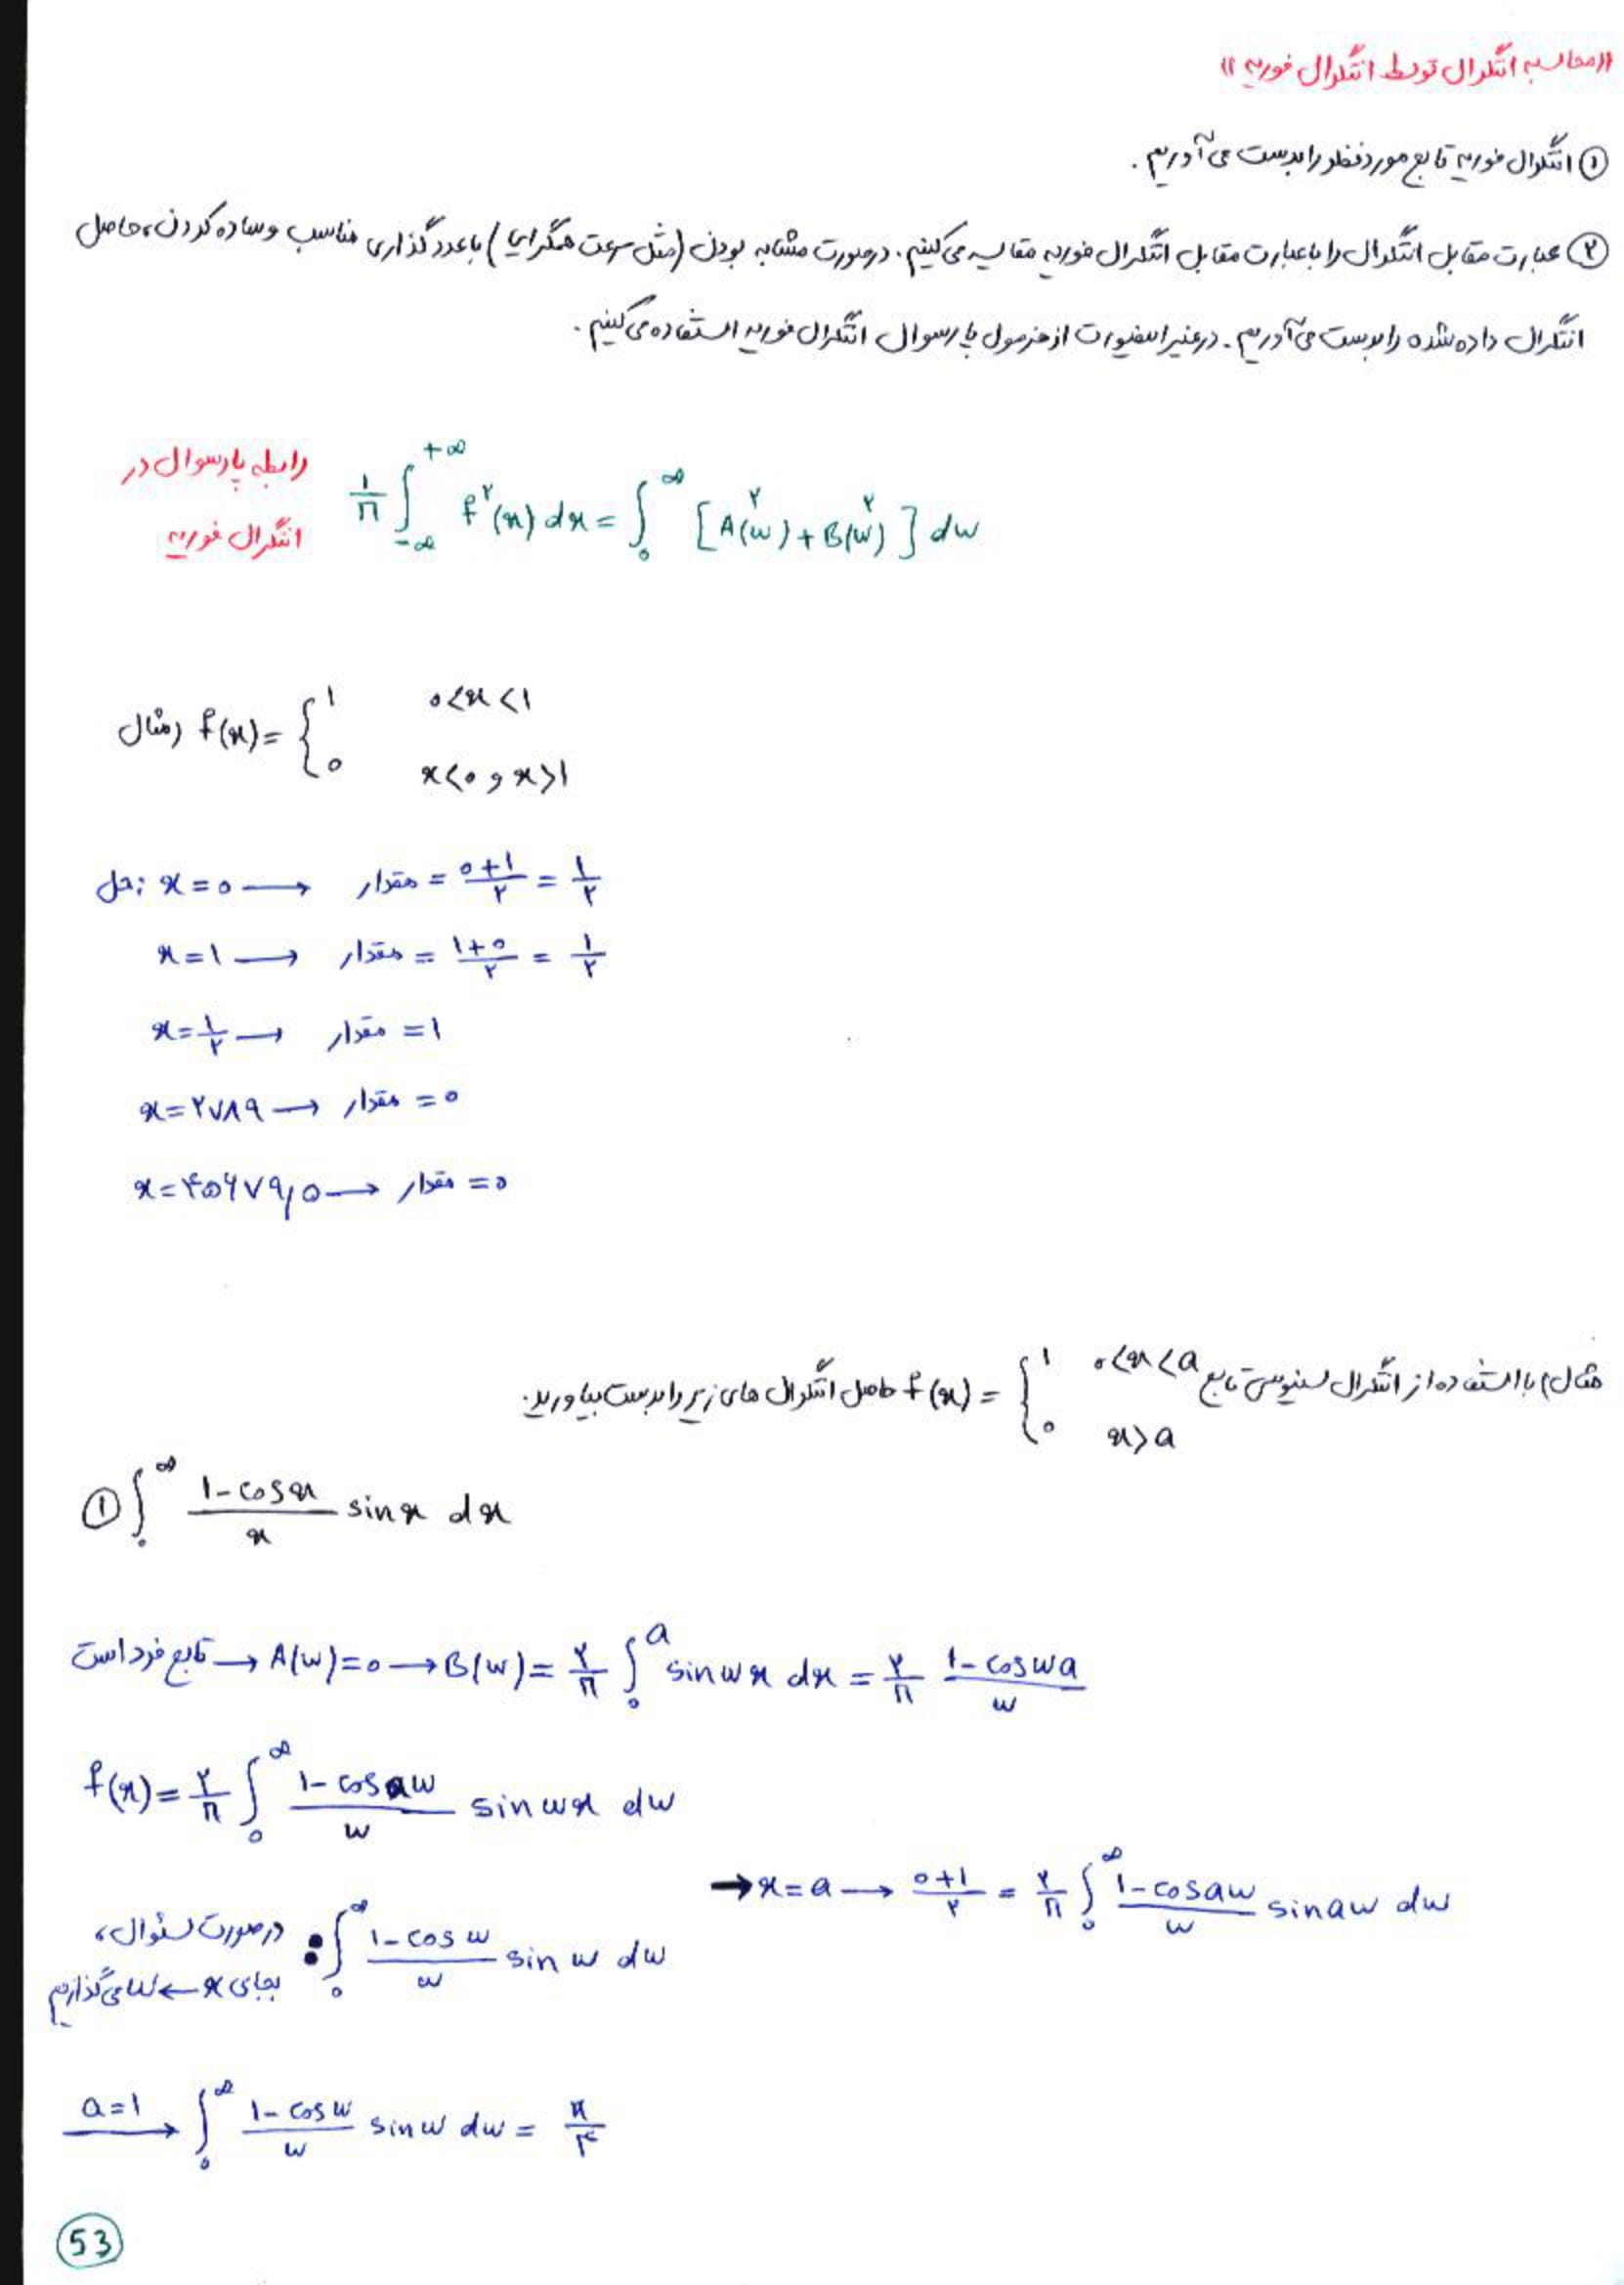 «محاسبه انتگرال توسط انتگرال فوریه»
① انتگرال فوریه تابع مورد نظر را بدست می‌آوریم.
② عبارت مقابل انتگرال را با عبارت مقابل انتگرال فوریه مقایسه می‌کنیم. در صورت مشابه بودن (مثل سرعت همگرایی) با عددگذاری مناسب و ساده کردن، حاصل
انتگرال داده شده را بدست می‌آوریم. در غیر اینصورت از فرمول پارسوال انتگرال فوریه استفاده می‌کنیم.
رابطه پارسوال در انتگرال فوریه
۱/π ∫_{-∞}^{+∞} f²(x) dx = ∫_۰^∞ [A(ω)² + B(ω)²] dω
مثال) f(x) = { ۱ ۰<x<۱
۰ x<۰ و x>۱
حل: x=۰ → مقدار = (۰+۱)/۲ = ۱/۲
x=۱ → مقدار = (۱+۰)/۲ = ۱/۲
x=۱/۲ → مقدار = ۱
x=۲۷۸۹ → مقدار = ۰
x=۴۵۶۷۹,۵ → مقدار = ۰
مثال) با استفاده از انتگرال سینوسی تابع f(x) = { ۱ ۰<x<a ; ۰ x>a حاصل انتگرال های زیر را بدست بیاورید.
① ∫_۰^∞ (۱-cosx)/x sinx dx
تابع فرد است → A(ω)=۰ → B(ω) = ۲/π ∫_۰^a sinωx dx = ۲/π (۱-cosωa)/ω
f(x) = ۲/π ∫_۰^∞ (۱-cosaω)/ω sinωx dω
→ x=a → (۰+۱)/۲ = ۲/π ∫_۰^∞ (۱-cosaω)/ω sinaω dω
در صورت سئوال، بجای x ← ω می‌گذاریم : ∫_۰^∞ (۱-cosω)/ω sinω dω
a=۱ → ∫_۰^∞ (۱-cosω)/ω sinω dω = π/۴
53